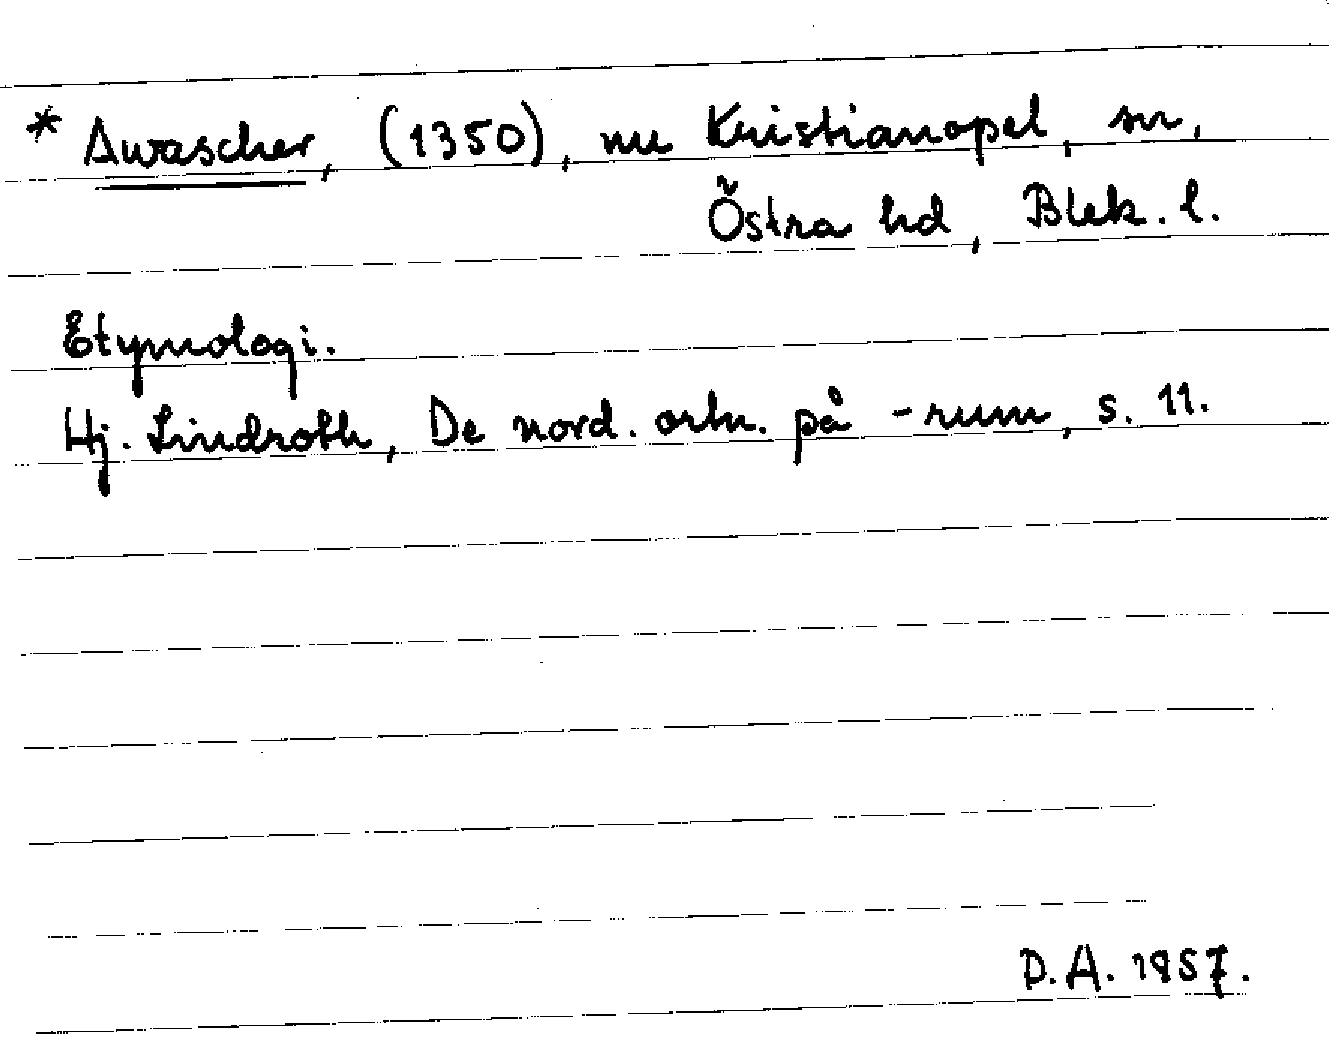 * Awascher, (1350), nu Kristianopel, sn,
Östra hd, Blek. l.
Etymologi.
Hj. Lindroth, De nord. ortn. på -rum, s. 11.
D.A. 1957.